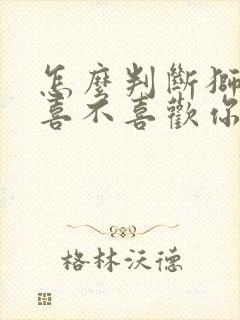 怎麼判斷獅
喜不喜歡你
格林沃德